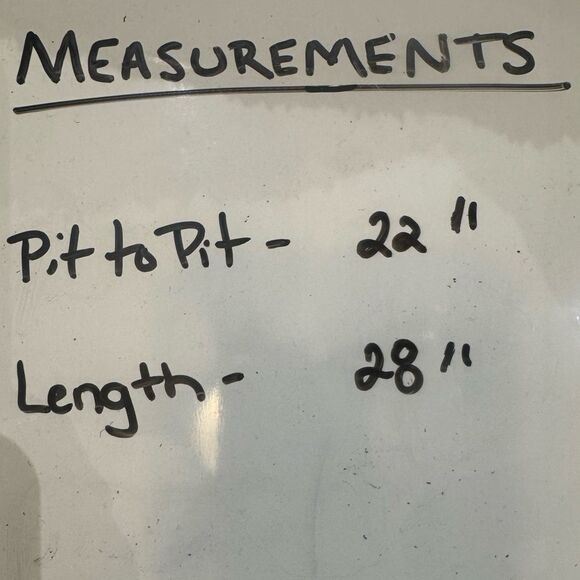 MEASUREMENTS
Pit to Pit - 22"
Length - 28"